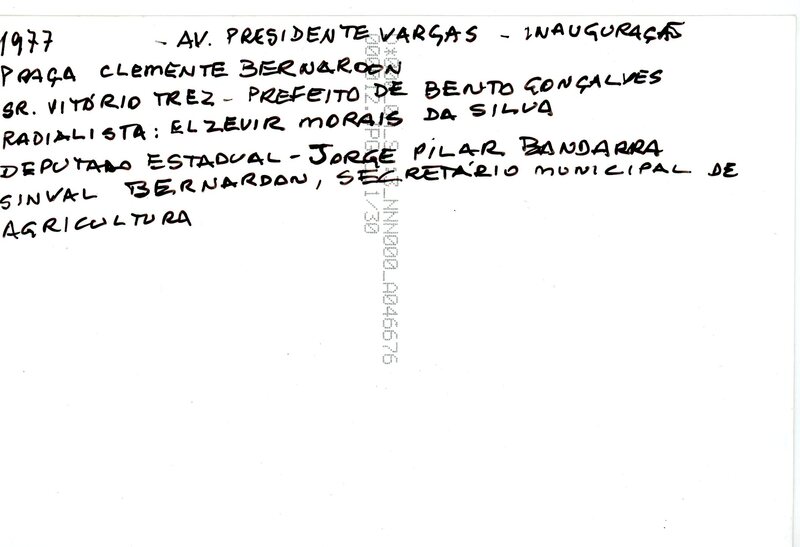 1977 - AV. PRESIDENTE VARGAS - INAUGURAÇÃO
PRAÇA CLEMENTE BERNARDON
SR. VITÓRIO TREZ - PREFEITO DE BENTO GONÇALVES
RADIALISTA: ELZEVIR MORAIS DA SILVA
DEPUTADO ESTADUAL - JORGE PILAR BANDARRA
SINVAL BERNARDON, SECRETÁRIO MUNICIPAL DE
AGRICULTURA
NNN000_A046676
1/30